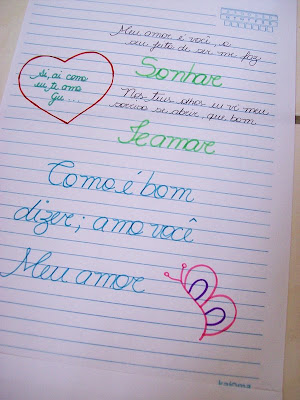 Meu amor é você, o
seu jeito de ser me faz
Sonhar
Ai, ai como
eu, ti amo
Gu...
Nos teus olhos eu vi meu
sorriso se abrir, que bom
Te amar
Como é bom
dizer; amo você
Meu amor